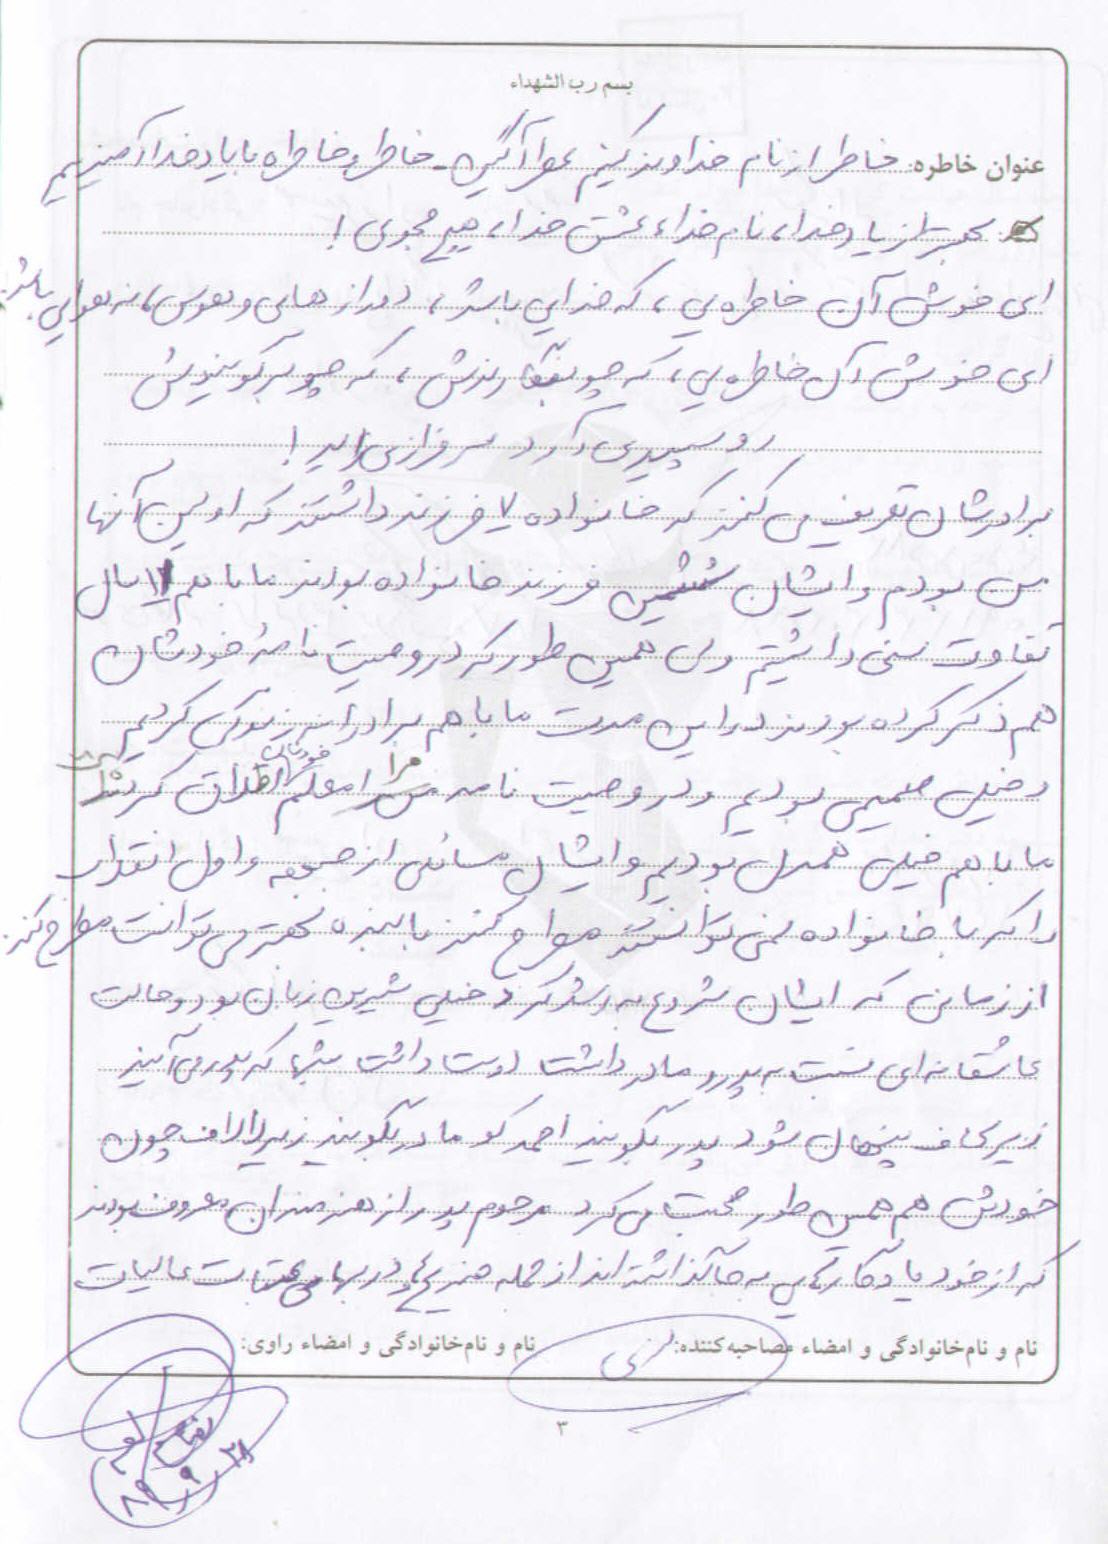 بسم رب الشهداء
عنوان خاطره: خاطر از نام خداوند کنیم عطرآگین - خاطر و خاطره با یاد خدا آمیزیم
بهتر از یاد خدا، نام خدا، عشق خدا، هیچ مجوی !
ای خوش آن خاطره‌یی، که خدایی باشد، دور از های و هوس، نه هوایی باشد
ای خوش آن خاطره‌یی، که چو بنگارندش، که چو برگویندش
روسپیدی آرد سرفرازی زاید !
برادرشان تعریف می کنند که خانواده ۷ فرزند داشتند که اولین آنها
من بودم و ایشان ششمین فرزند خانواده بودند ما با هم ۱۷ سال
تفاوت سنی داشتیم ولی همین طور که در وصیت نامه خودشان
هم ذکر کرده بودند در این مدت ما با هم برادرانه زندگی کردیم
و خیلی صمیمی بودیم و در وصیت نامه مرا معلم خودشان اطلاق کردند
ما با هم خیلی همدل بودیم و ایشان مسائلی از جبهه و اول انقلاب
را که با خانواده نمی توانستند مطرح کنند با بنده بهتر می توانست مطرح کند.
از زمانی که ایشان شروع به رشد کرد خیلی شیرین زبان بود و حالت
عاشقانه‌ای نسبت به پدر و مادر داشت دوست داشت شبها که پدر می آیند
زیر لحاف پنهان شود پدر بگویند احمد کو مادر بگویند زیر لالاف چون
خودش هم همین طور صحبت می کرد مرحوم پدر از هنرمندان معروف بودند
که از خود یادگارهایی به جا گذاشته اند از جمله ضریح‌ها و دربهای عتبات عالیات
نام و نام‌خانوادگی و امضاء مصاحبه‌کننده: نام و نام‌خانوادگی و امضاء راوی:
۳
۸۹/۹/۲۸